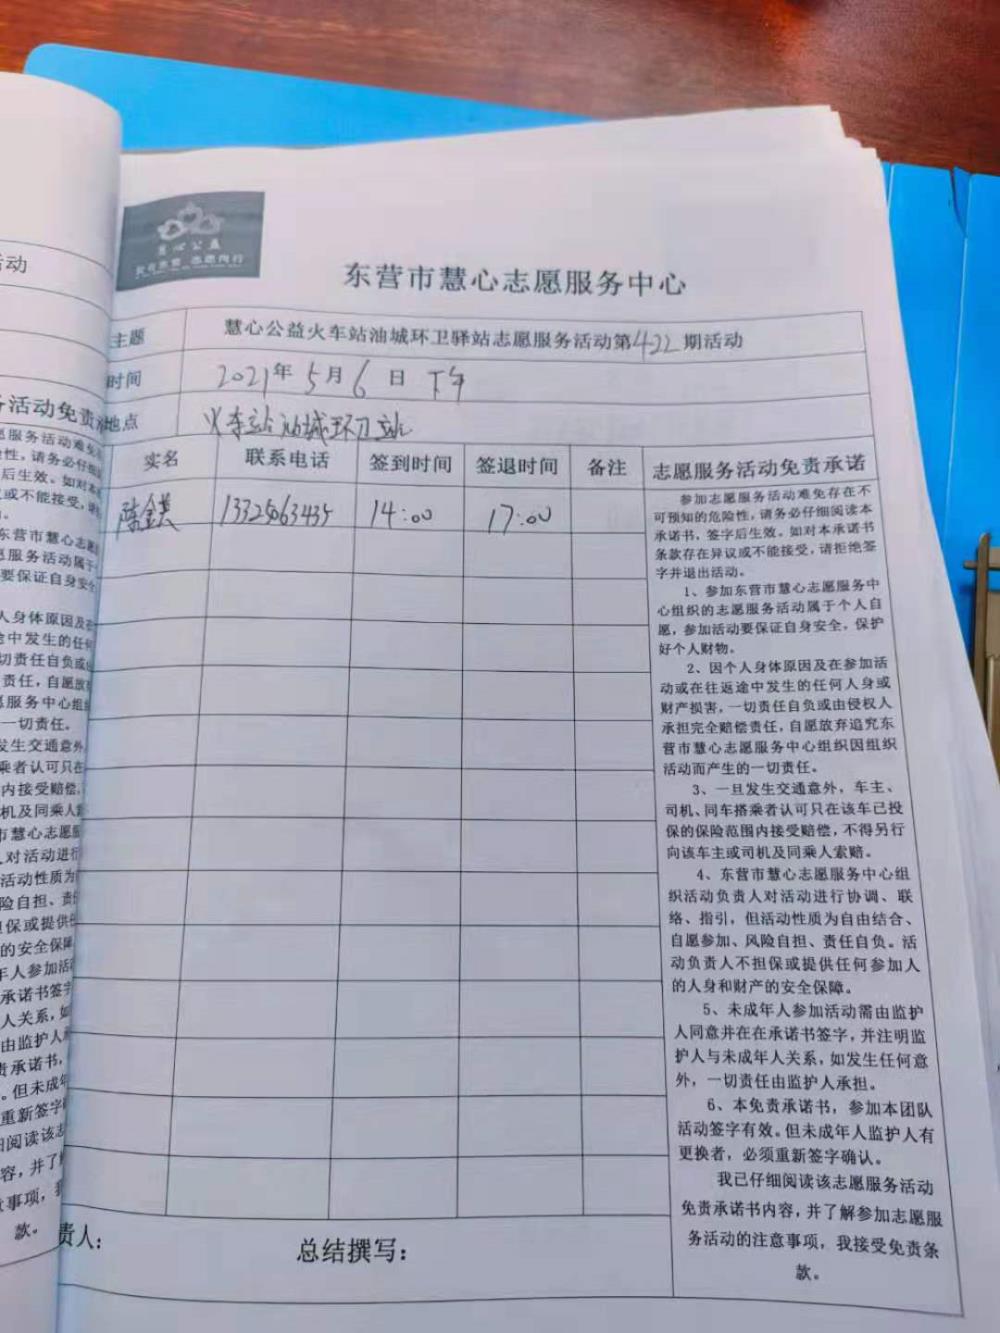 慧心公益
东营市慧心志愿服务中心
主题 慧心公益火车站油城环卫驿站志愿服务活动第422期活动
时间 2021年5月6日 下午
地点 火车站油城环卫站
实名 联系电话 签到时间 签退时间 备注 志愿服务活动免责承诺
陈 13325063435 14:00 17:00
参加志愿服务活动难免存在不
可预知的危险性，请务必仔细阅读本
承诺书，签字后生效。如对本承诺书
条款存在异议或不能接受，请拒绝签
字并退出活动。
1、参加东营市慧心志愿服务中
心组织的志愿服务活动属于个人自
愿，参加活动要保证自身安全，保护
好个人财物。
2、因个人身体原因及在参加活
动或在往返途中发生的任何人身或
财产损害，一切责任自负或由侵权人
承担完全赔偿责任，自愿放弃追究东
营市慧心志愿服务中心组织因组织
活动而产生的一切责任。
3、一旦发生交通意外，车主、
司机、同车搭乘者认可只在该车已投
保的保险范围内接受赔偿，不得另行
向该车主或司机及同乘人索赔。
4、东营市慧心志愿服务中心组
织活动负责人对活动进行协调、联
络、指引，但活动性质为自由结合、
自愿参加、风险自担、责任自负。活
动负责人不担保或提供任何参加人
的人身和财产的安全保障。
5、未成年人参加活动需由监护
人同意并在在承诺书签字，并注明监
护人与未成年人关系，如发生任何意
外，一切责任由监护人承担。
6、本免责承诺书，参加本团队
活动签字有效。但未成年人监护人有
更换者，必须重新签字确认。
我已仔细阅读该志愿服务活动
免责承诺书内容，并了解参加志愿服
务活动的注意事项，我接受免责条
款。
责人： 总结撰写：